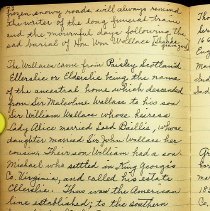 frozen snowy roads will always remind
the writer of the long funeral train
and the mournful days following the
sad burial of Hon. Wm Wallace
The Wallaces came from Paisley Scotland
Ellerslie or Elderslie being the name
of the ancestral home which descended
from Sir Malcolme Wallace to his son
Sir William Wallace whose heiress
Lady Alice married Lord Baillie, whose
daughter married Sir John Wallace her
cousin. Their son William had a son
Michael who settled in King Georges
Co. Virginia, and called his estate
Ellerslie. Thus was the American
line established; to the southern